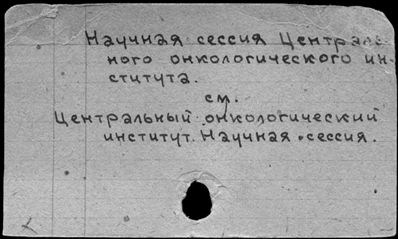 Научная сессия Централь-
ного онкологического ин-
ститута.
см.
Центральный онкологический
институт. Научная сессия.